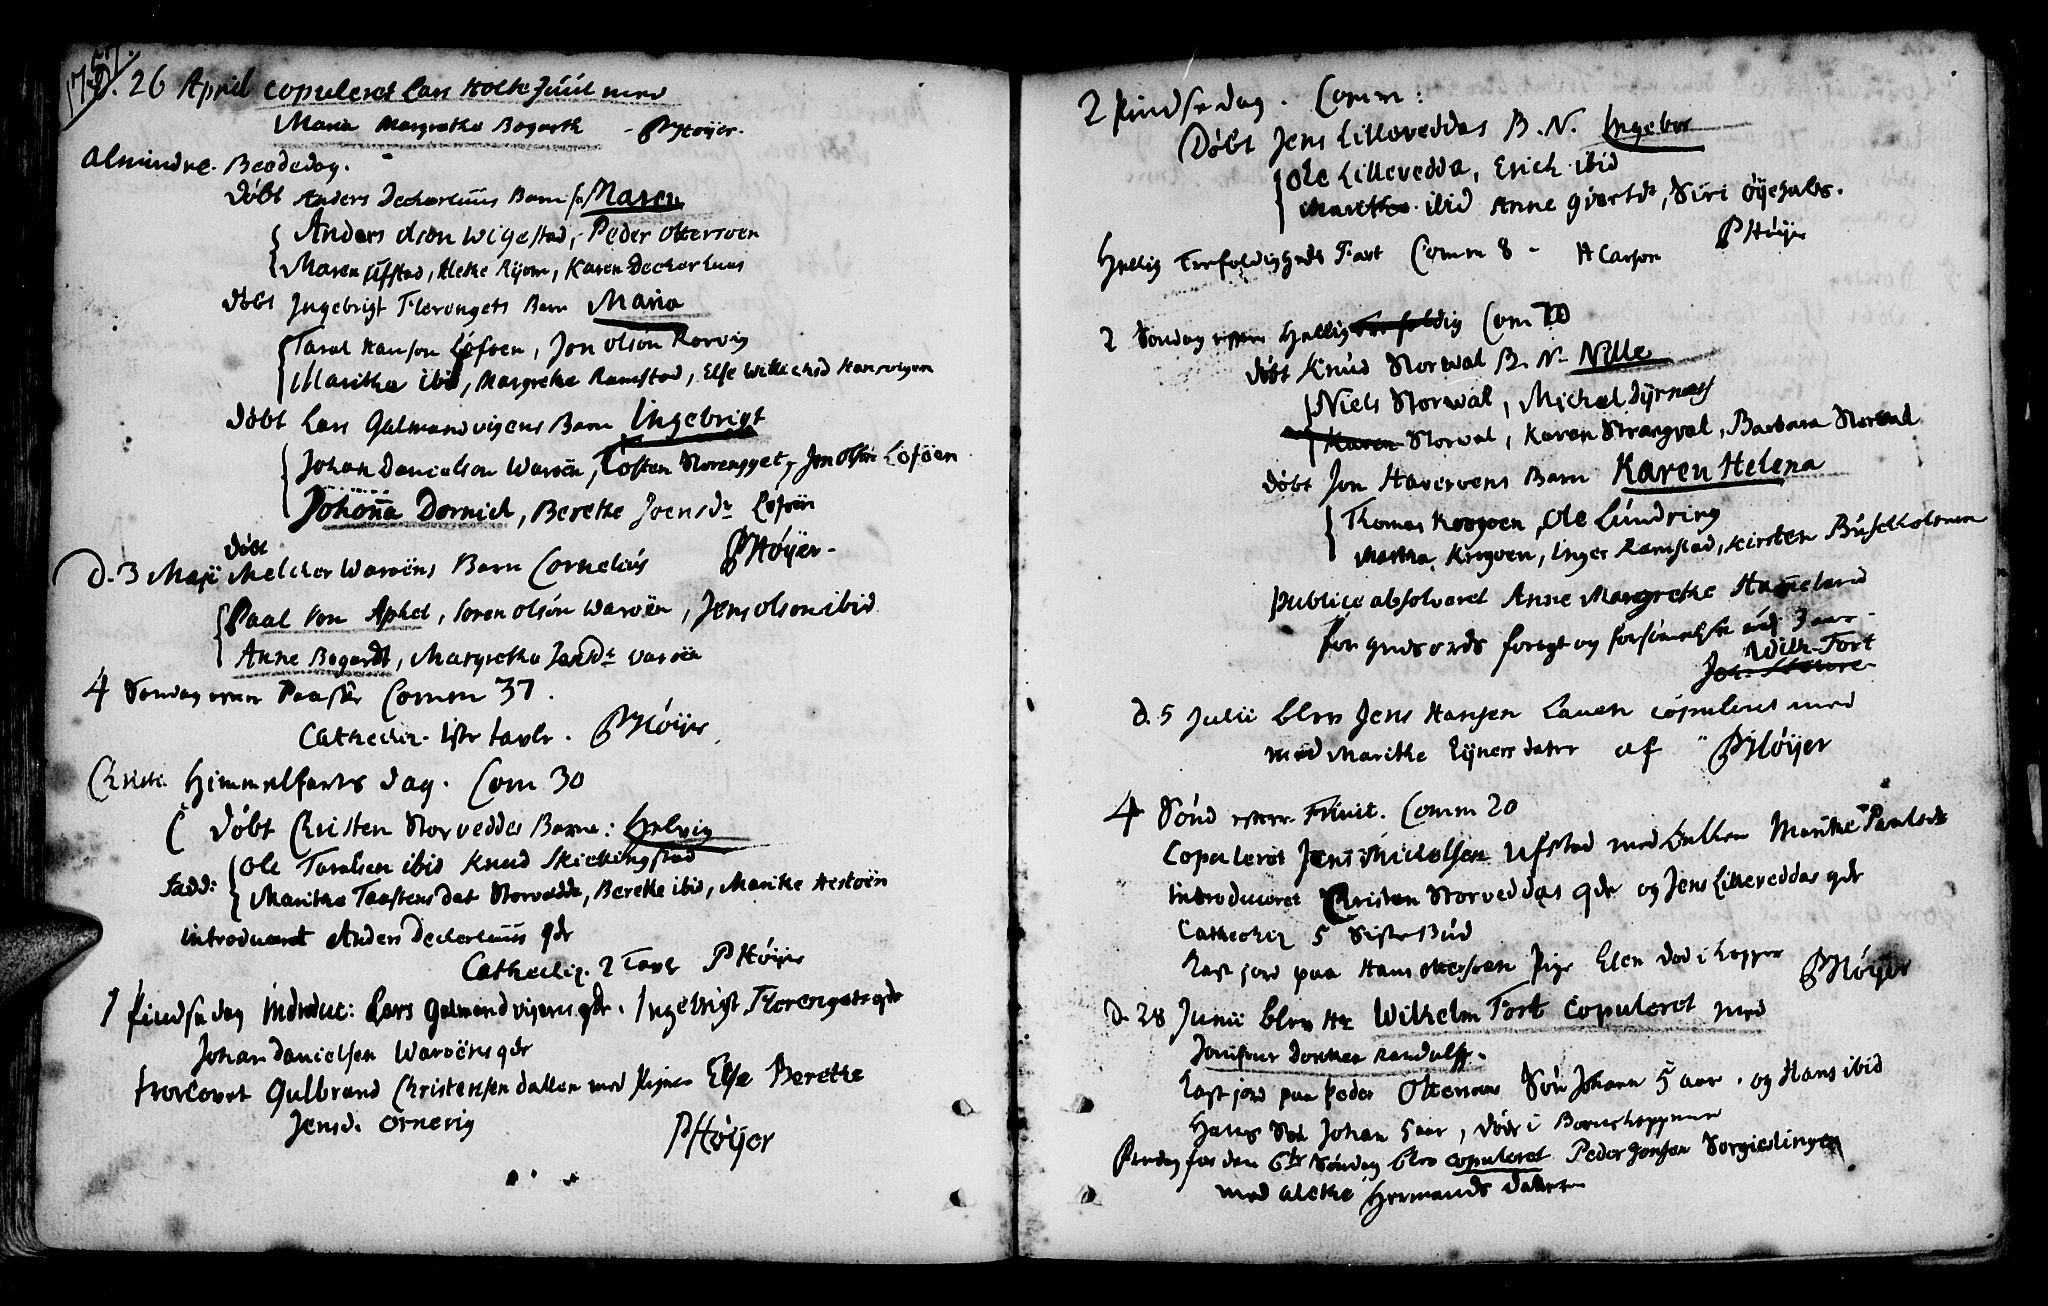 1757.
D. 26 April copuleret Lars Holte Juul med
Maria Margretha Bogarth - PHöÿer.
Almindre. Beededag.
Döbt Anders Deckerhuus Barn Maren
Anders olson Wigestad, Peder Ottersøen
Maren Ufstad, Aleke Rÿom, Karen Deckerhuus
döbt Ingebrigt Flerengets Barn Maria
Taral Hanson Lofoen, Jon olsón Rorvig
Maritha ibid, Margrethe Ramstad, Else Willichsd
döbt Lars Galmandvigens Barn Ingebrigt
Johan Danielson Waroën, Tosten Storengget, Jon olsón Lofoen
Johanna Dornich, Berethe Joensdr Lofoen
Döbt
D. 3 Maji Melcher Waroëns Barn Cornelius PHöÿer-
Paal von Aphel, Soren olsón Waroën, Jens olson ibid
Anne Bogardt, Margretha Jensdr Waroën
4 Søndag efter Paaske Comm 37.
Cathechiz. 1ste tavle. PHöÿer
Christi Himmelfarts dag. Com 30
Döbt Christen Storveddes Barn: Helvig
fadd: Ole Taralsen ibid Knud Skiehingstad
Maritha Taastensdat Storvedda, Berethe ibid, Marithe Hestøën
introduceret Anders Deckerhuus qdr
Cathechiz. 2 Tavl PHöÿer
1 Pindsedag Introduc: Lars Galmandvigens qdr. Ingebrigt Flerengets qdr
Johan Danielsen Waroëns qdr
trolovet Gulbrand Christensen dallen med Pigen Else Berethe
Jensd. Ornevig
PHöÿer
2 Pindsedag. Comm:
Döbt Jens Lilleveddas B. N. Ingebor
Ole Lillevedda, Erich ibid
Marithe ibid Anne Sivertdr, Siri Øÿehals.
PHöÿer
Hellig Trefoldigheds Fæst Comm 8 - H Carson
2 Søndag efter Hellig Trefoldig Com 70
döbt Knud Storwal B. N. Nille
Niels Storwal, Michal Dÿrnæs
Karen Storwal, Karen Strangval, Barbara Storwal
döbt Jon Havervens Barn Karen Helena
Thomas Krogoen, Ole Lundring
Martha Krogoen, Inger Ramstad, Kirsten Buschholmen
publice absolveret Anne Margrethe Hammeland
for gudsords foragt og forsömmelse udj 3 aar.
Wilh. Tort
D. 5 Julii blev Jens Hansen Lauen copuleret med
med Marithe Eÿnersdater af PHöÿer
4 Sönd efter Trinit. Comm 20
Copuleret Jens Nicolsen Ufstad med Enken Marithe Paulsdr
Introduceret Christen Storveddas qdr og Jens Lilleveddas qdr
Cathechiz 5 Siste Bud
Kast jord paa Hans Pige Elen død i kopper
PHöÿer
D. 28 Junii blev Hr Wilhelm Tort copuleret med
Jomfrue Dorthea Randulff.
Kast jord paa Peder Ottersøns Søn Johan 5 aar. og Hans ibid
Hans Søn Johan 5 aar, døde i Bornekopperne
Fredag før den 6te Søndag blev copuleret Peder Jonsen Sorgiedlingen
med Alethe Hermands dater